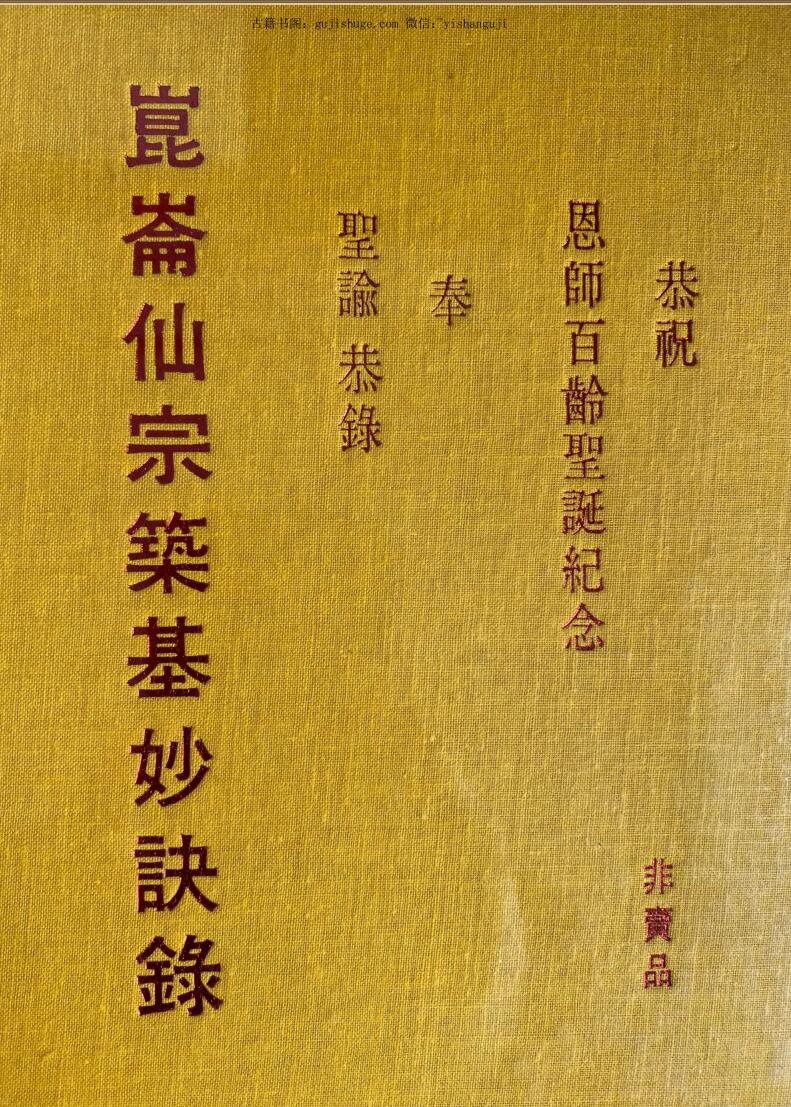 古籍书阁：gujishuge.com 微信：yishanguji
恭祝
恩師百齡聖誕紀念
奉
聖諭 恭錄
崑崙仙宗築基妙訣錄
非賣品